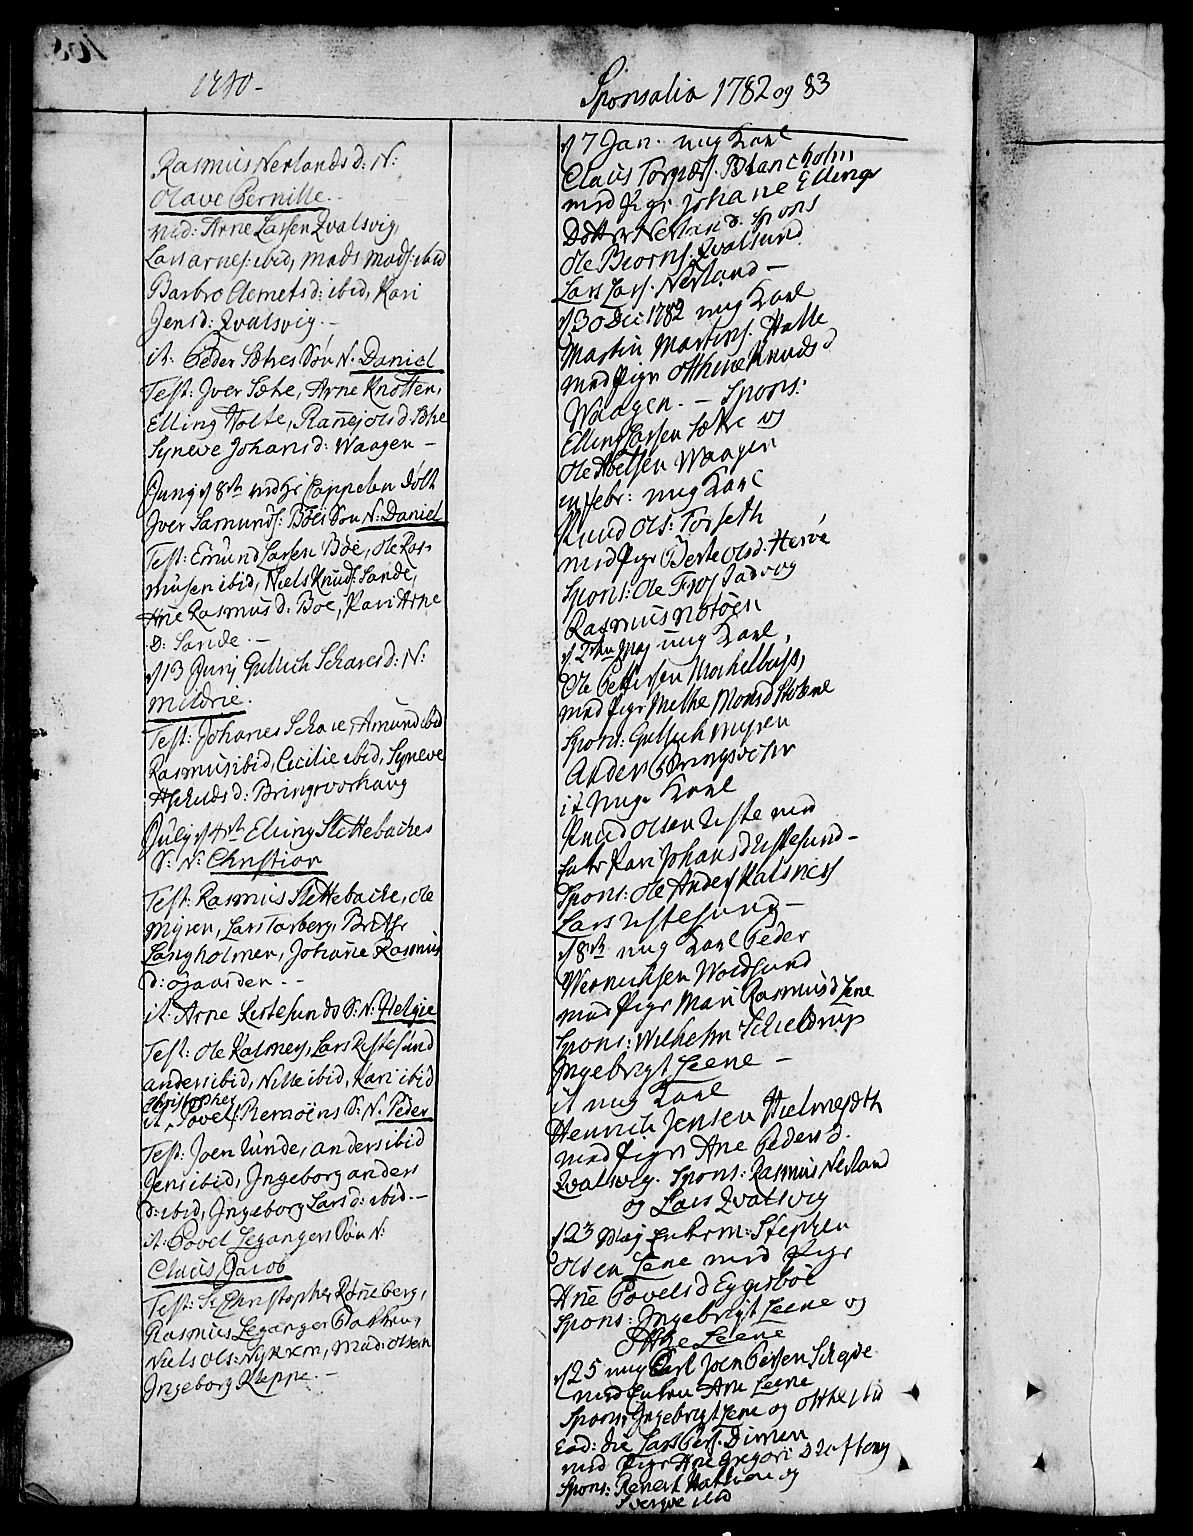 1780-
Rasmus Nerlands d: N:
Olave Pernille.-
Mad: Arne Larsen Qvalsvig,
Lars arnes: ibid, Mads Mads: ibid
Barbro Clemets d: ibid, Kari
Jens d: Qvalsvig.-
it: Peder Sætres Søn N. Daniel
Test: Iver Sætre, Arne Knotten,
Elling Holte, Ragnej ols d. Sætre
Syneve Johans d: Waagen -
Juny d 8de ved Hr Cappelen døbt
Iver Samunds: Bøes Søn N: Daniel
Test: Emund Larsen Bøe, Ole Ras-
musen ibid, Niels Knuds: Sande,
Ane Rasmus d: Boe, Kari Arne
D: Sande.-
d 13 Junj Gullich Schares d: N:
Mildrie.
Test: Johanes Schare, Amund ibid
Rasmus ibid, Cicilie ibid, Syneve
d: Bringsvorhaug
July d 4de Elling Slettebackes
S: N: Christian
Test: Rasmus Slettebache, Ole
Myren, Lars Torberg, Brithe
Langholmen, Johane Rasmus
d: ojaarden.--
it: Arne Ristesunds S: N: Helgie
Test: Ole Kalmes, Lars Ristesund
anders ibid, Nille ibid, Kari ibid
Christopher
it, Povel Remøens S: N: Peder
Test: Joen Runde, anders ibid
Jens ibid, Ingeborg anders
d: ibid, Ingeborg Lars d: ibid.-
it: Povel Leganger Søn N:
Claus Jacob
Test: Sr Christopher Røneberg,
Rasmus Leganger
Niels ols:, Mad: olsen
Ingeborg Kleppe.-
Sponsalia 1782 og 83
d 7 Jan. ung Karl
Claus Blancholm
med Pige Johane Ellings
Dotter Nerland. Spons
Ole Biørns. Qvalsund
Lars Lars. Nerland -
d 30 Dec 1782 ung Karl
Martin Martins. Halle
med Pige Othine Knuds d
Waagen.- Spons:
Elling Larsen Sætre og
Ole Abelsen Waagen
en febr: ung Karl
Knud Ols: Torseth
med Pige Berte ols d. Herøe
Spons: Ole og
Rasmus Notøen
d 2den Maj ung Karl,
Ole Pettersen
med Pige Methe Mons d
Spons: Gullich Myren
Anders Bringsvor
it unge Karl
Knud Olsen Riste med
Enke Kari Johans d Ristesund-
Spons: Ole Anders Kalsnes
Lars Ristesund-
d 8de ung Karl Peder
Wernichsen Woldsund
med Pige Mari Rasmus d Lene
Spons: Wilhelm Schieldrup
Ingebrigt Leene -
it ung Karl
Henrich Jensen Hielmesæth
med Pige Ane Peders d.
Qvalsvig. Spons: Rasmus Nerland
og Lars Qvalsvig
d 23 Maj Enkem: Stephen
Olsen Lene med Pige
Ane Povels d Eggesbøe
Spons: Ingebrigt Leene og
Otthe Leene
d 25 ung Carl Joen Persen
med Enken Ane Leene
Spons: Ingebrigt Lene og Otthe ibid
Eod: die Lars Pers. Dimen
med Pige Ane Gregori d
Spons: og
ibid